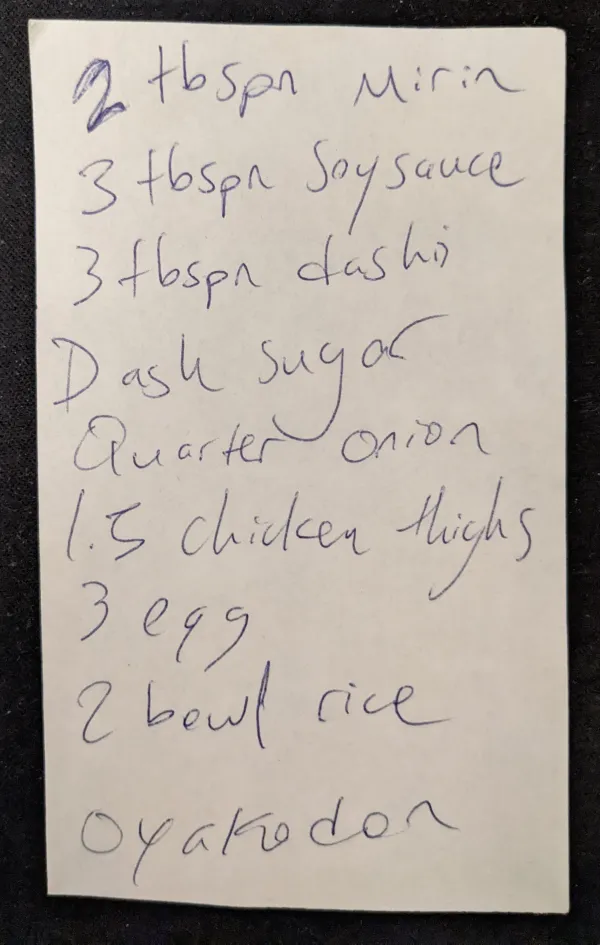 2 tbspn Mirin
3 tbspn Soysauce
3 tbspn dashi
Dash sugar
Quarter onion
1.5 chicken thighs
3 egg
2 bowl rice
Oyakodon